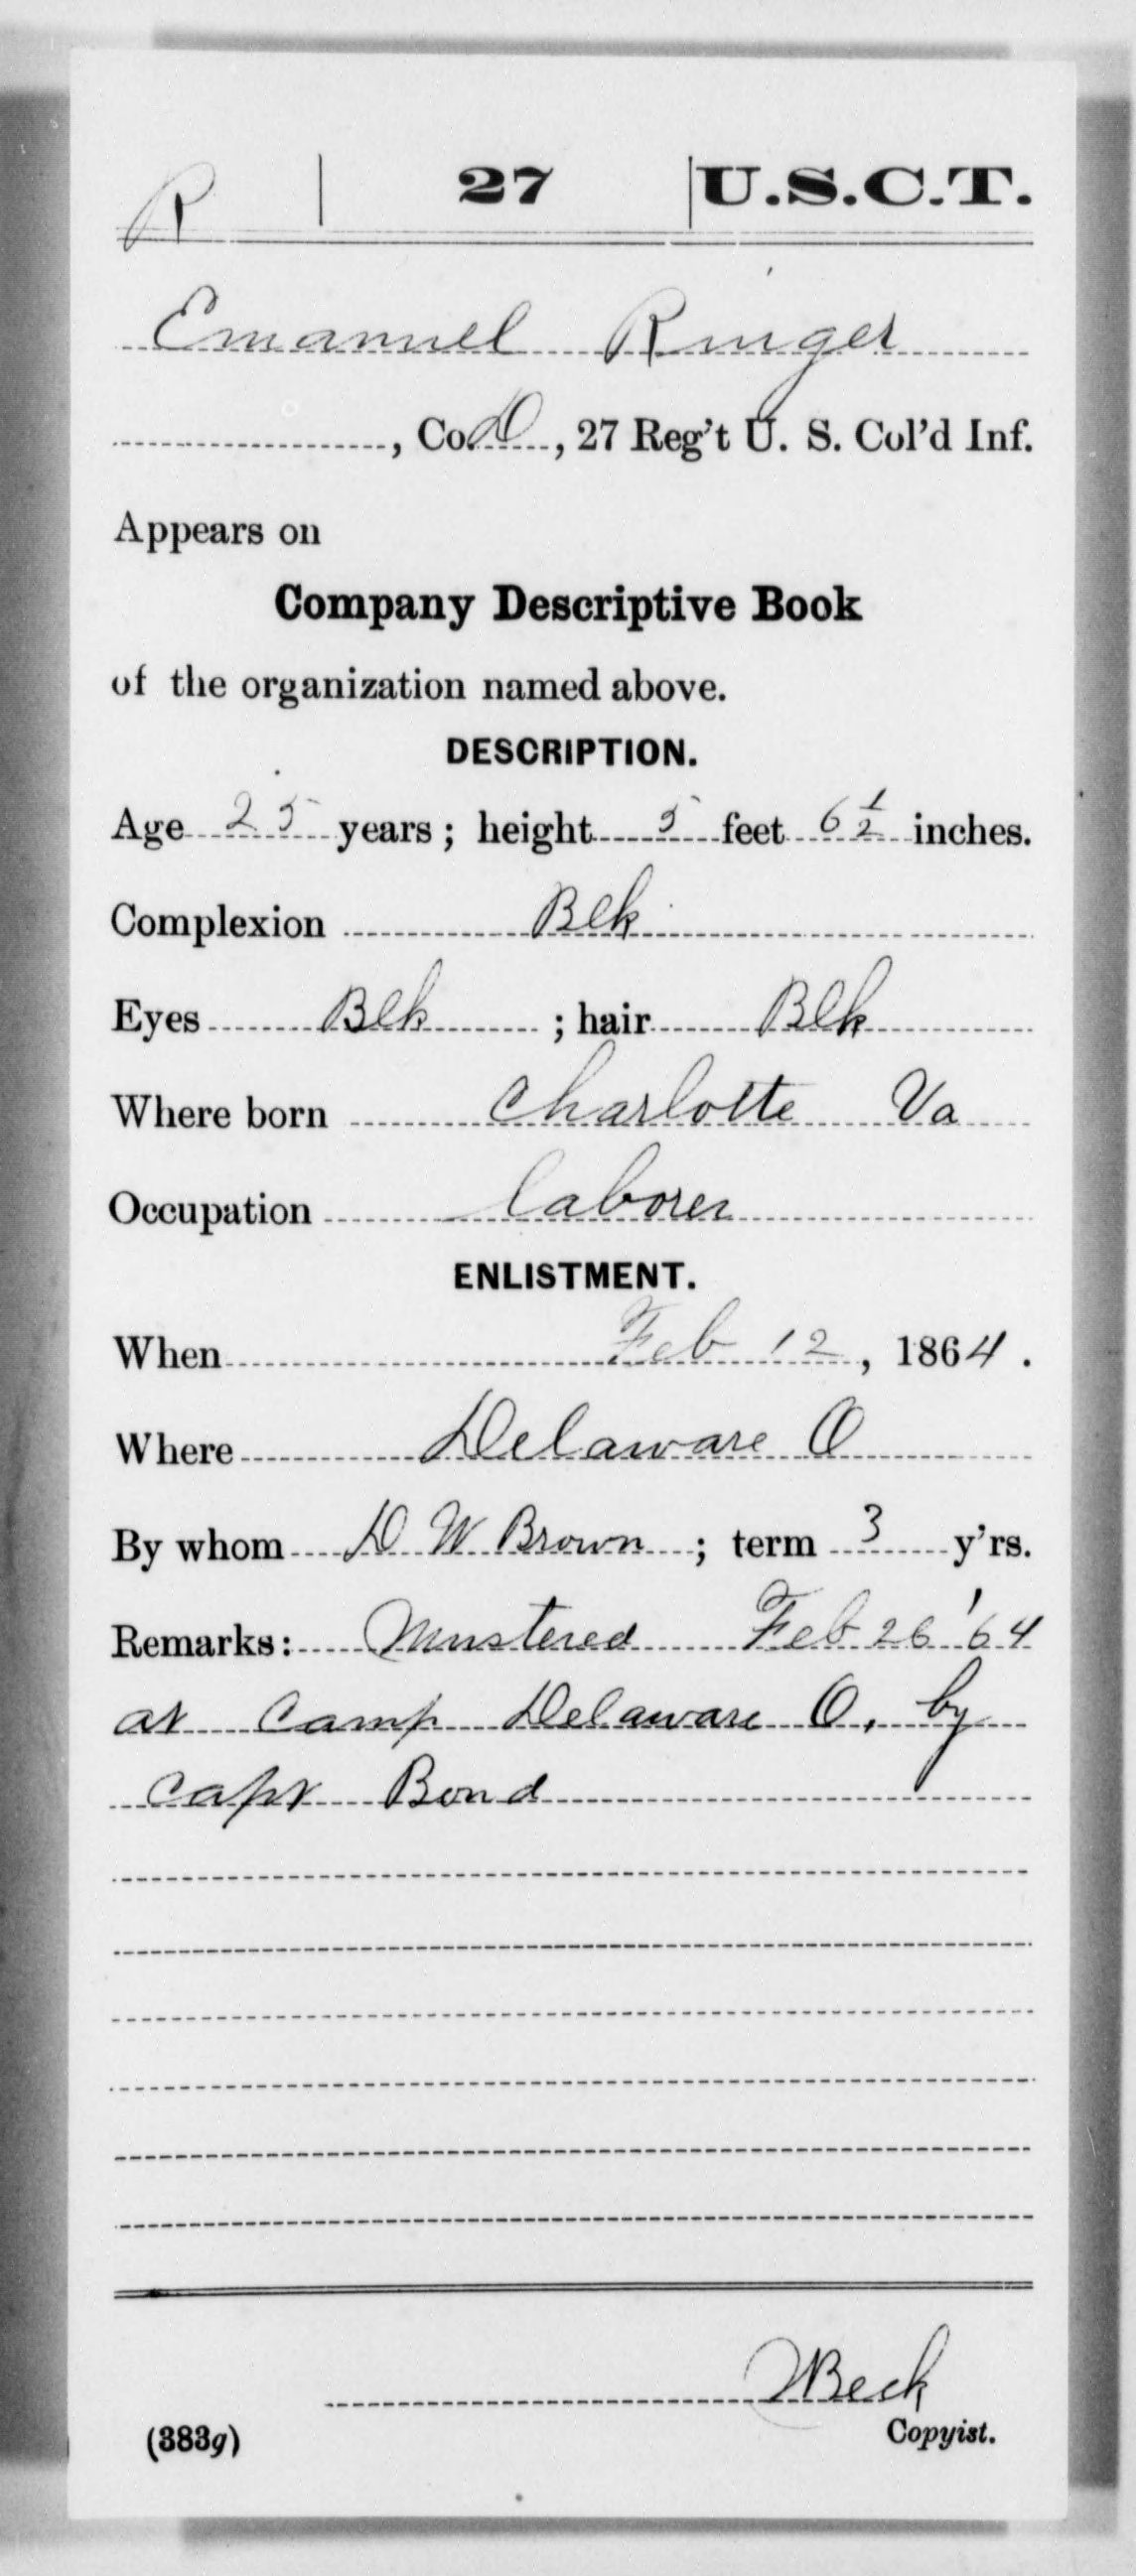 R | 27 | U.S.C.T.
Emanuel Ringer
, Co. D, 27 Reg't U. S. Col'd Inf.
Appears on
Company Descriptive Book
of the organization named above.
DESCRIPTION.
Age 25 years; height 5 feet 6 1/2 inches.
Complexion Blk
Eyes Blk; hair Blk
Where born Charlotte Va
Occupation laborer
ENLISTMENT.
When Feb 12, 1864.
Where Delaware O
By whom D. W. Brown; term 3 y'rs.
Remarks: Mustered Feb 26 '64
at Camp Delaware O, by
Capt Bond
Beck
(383g) Copyist.